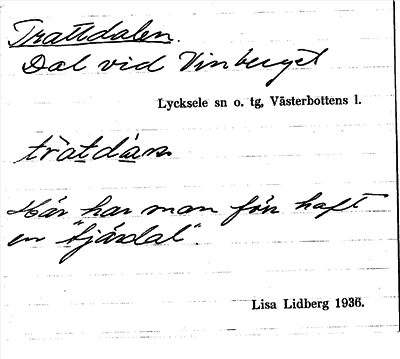 Trattdalen.
Dal vid Vinberget
Lycksele sn o. tg, Västerbottens l.
tràtdàṇ
Här har man förr haft
en "tjärdal".
Lisa Lidberg 1936.